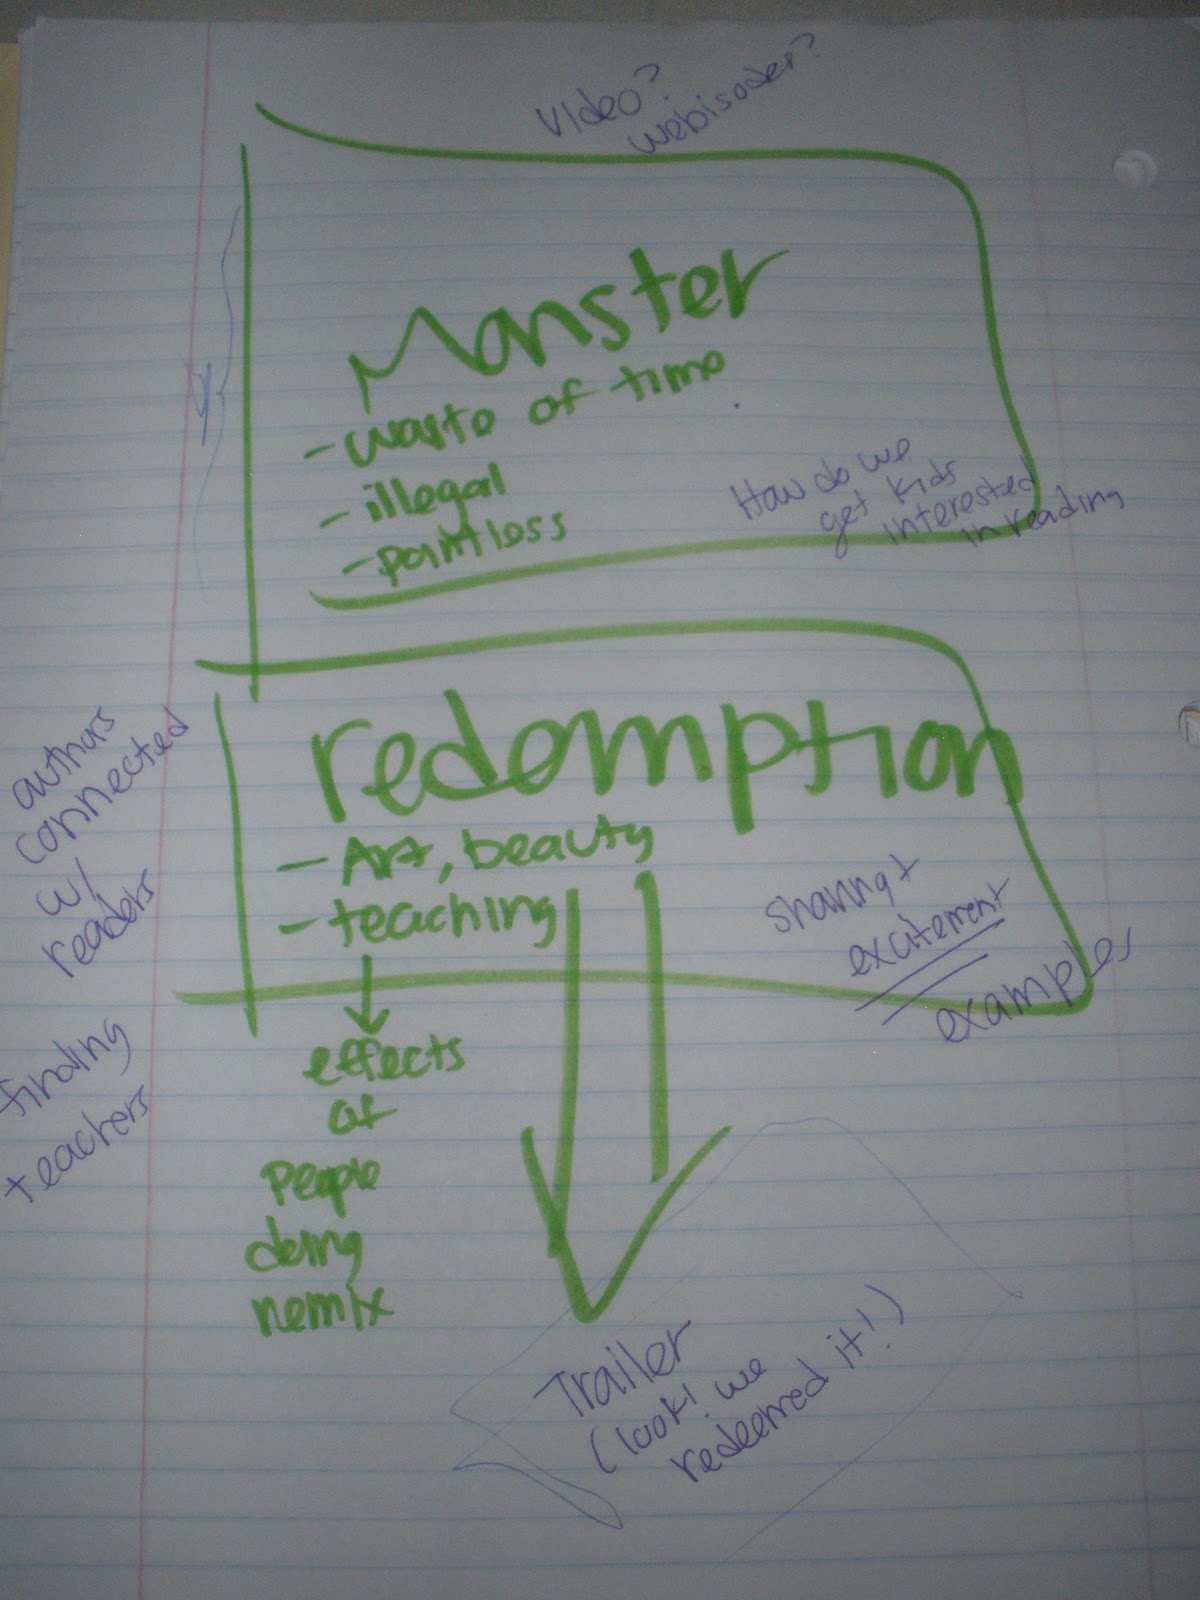 video?
webisodes?
Monster
- waste of time
- illegal
- pointless
How do we
get kids
interested
in reading
redemption
- Art, beauty
- teaching
effects
of
people
doing
remix
authors
connected
w/
readers
finding
teachers
sharing +
excitement
examples
Trailer
(look! we
redeemed it!)